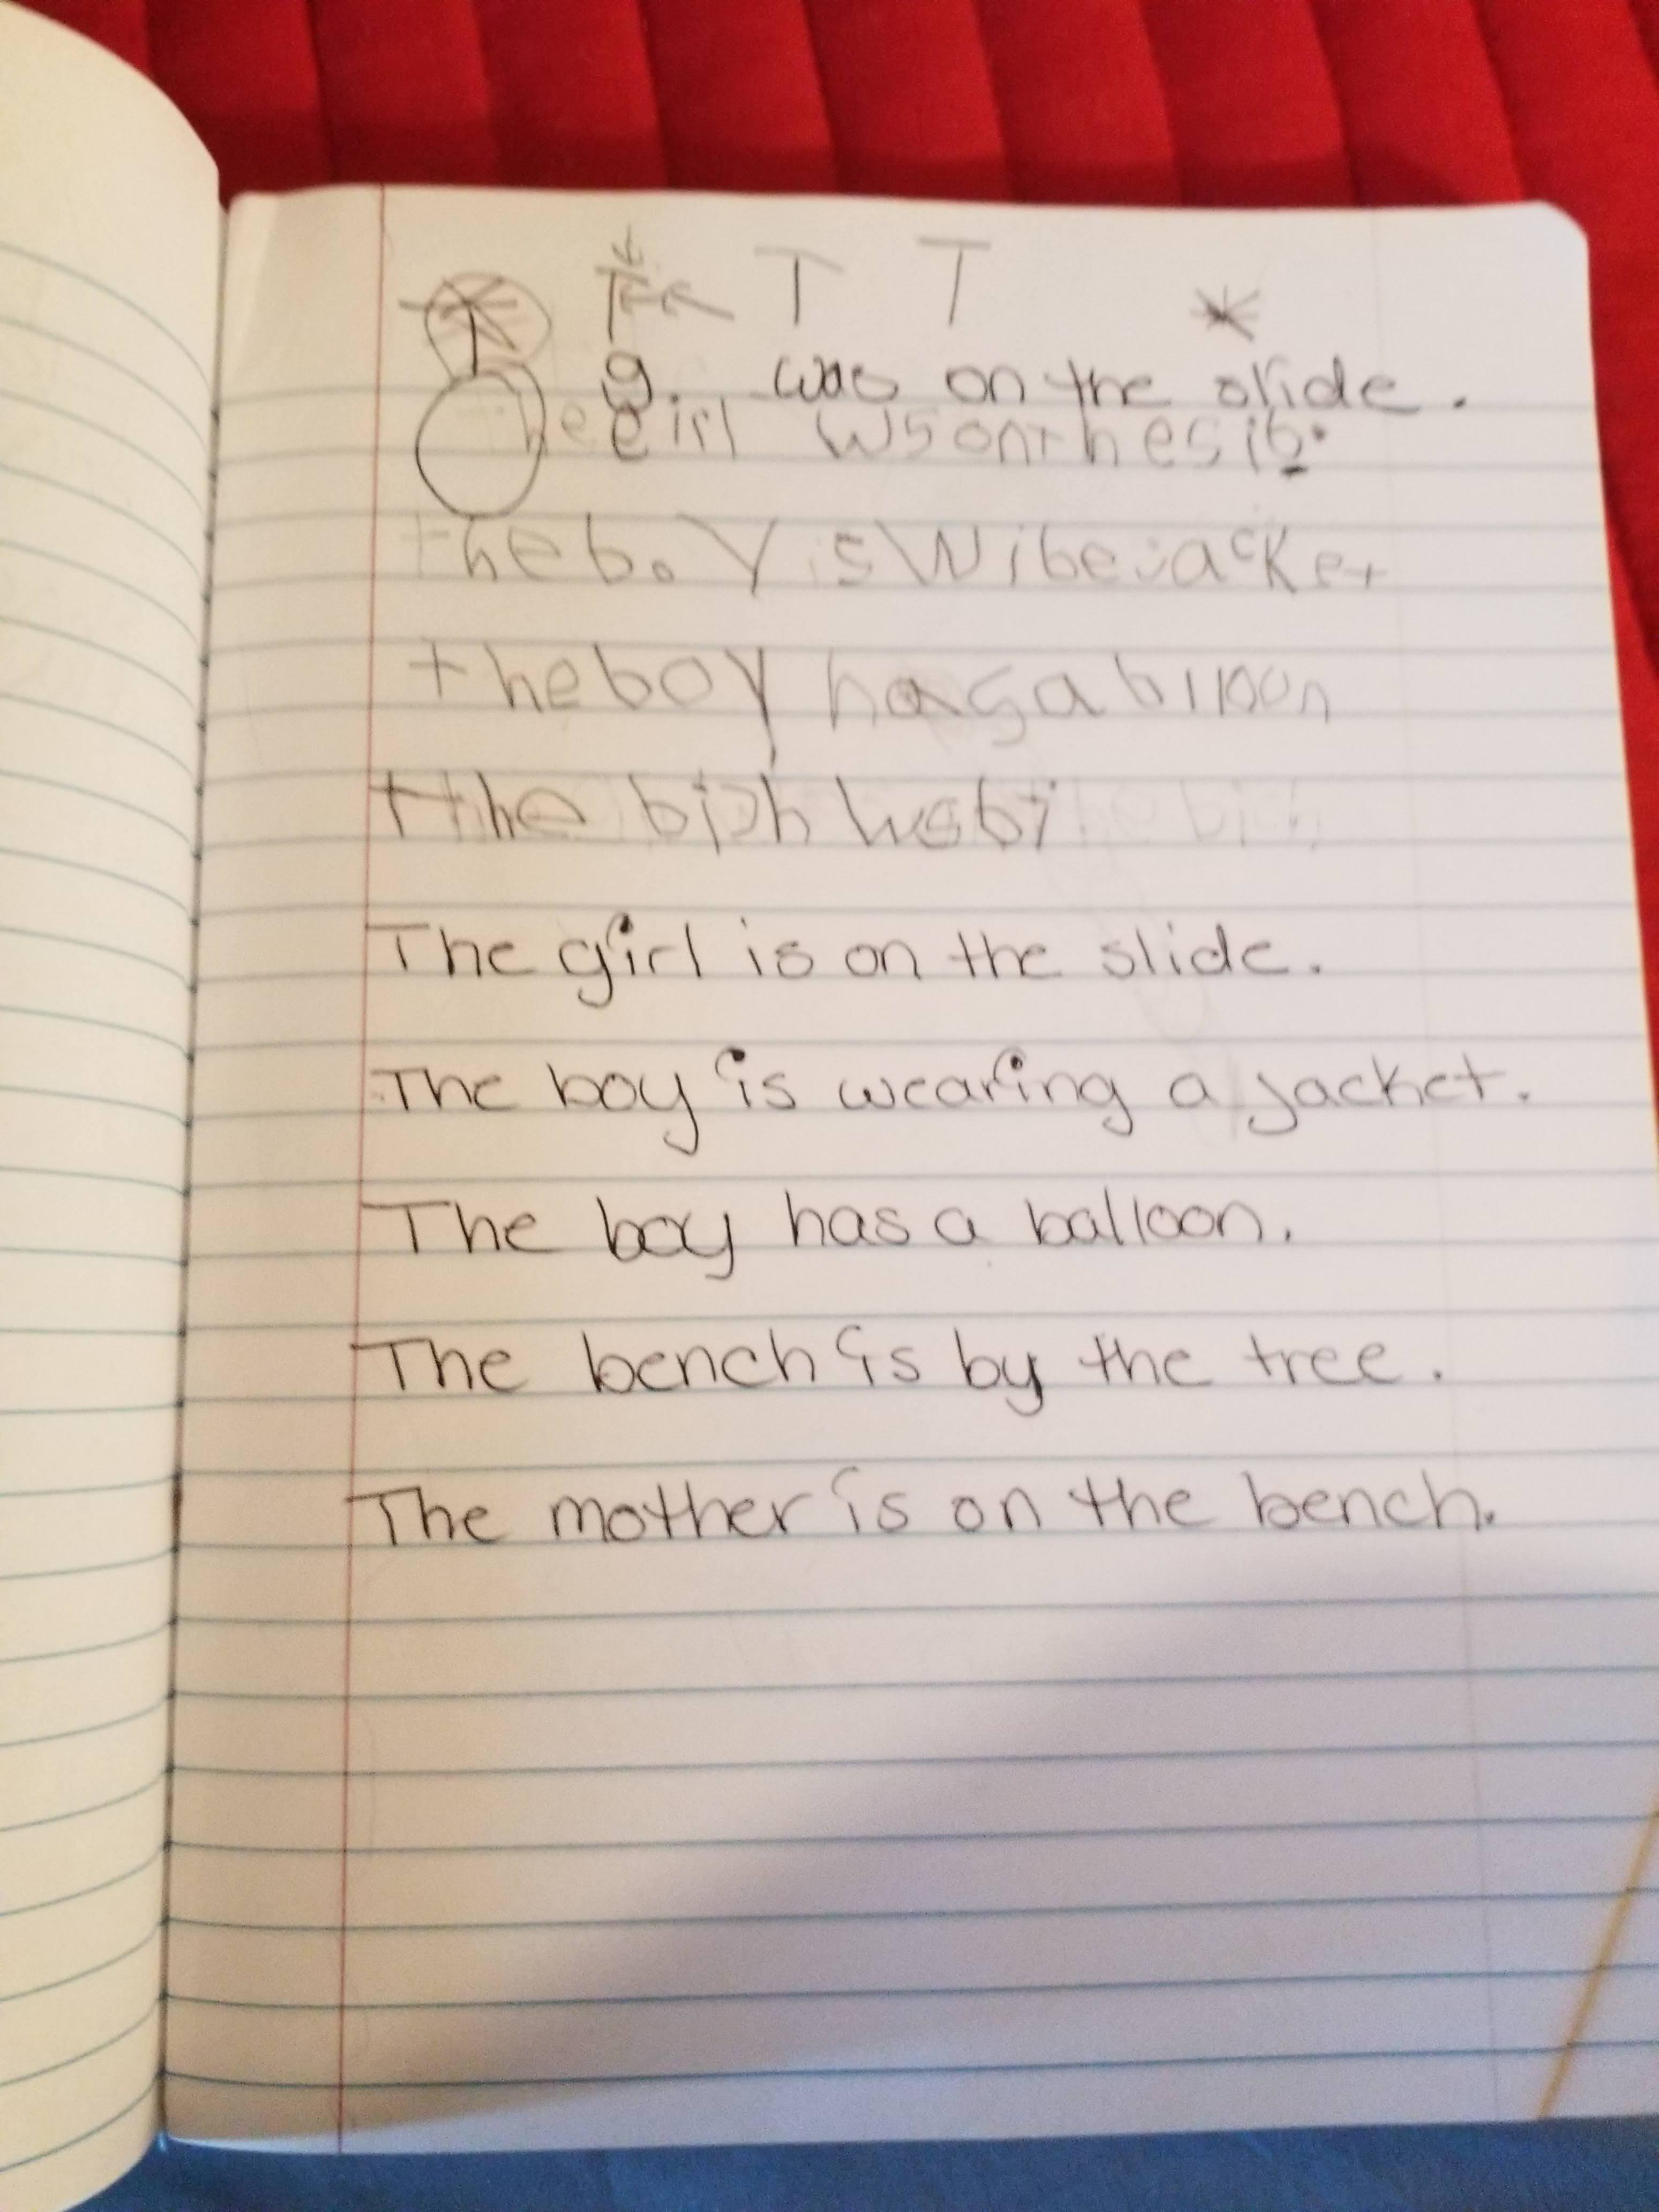 T T T
g. was on the slide.
he eirl WS onthesib.
the boy is Wibe jacket
the boy hasa blloon
the bich
The girl is on the slide.
The boy is wearing a jacket.
The boy has a balloon.
The bench is by the tree.
The mother is on the bench.